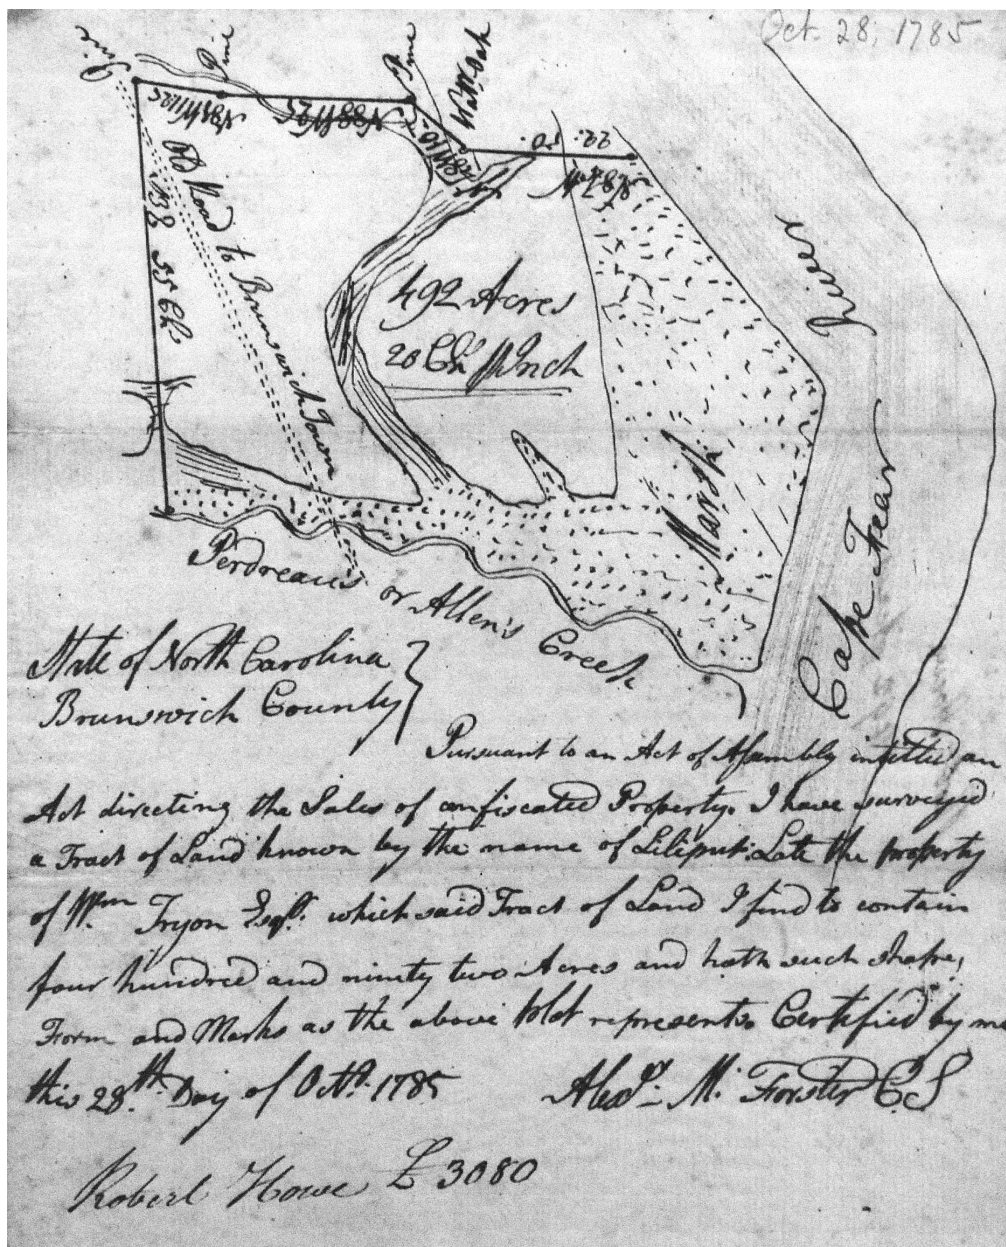 Oct. 28, 1785
Pine
Pine
Pine
Wt. Oak
22. 50.
Old Road to Brunswick Town
S 3 E 55 Ch
492 Acres
20 Chs. pr Inch
Marsh
River
Cape Fear
Perdreau's or Allen's Creek
State of North Carolina
Brunswick County
Pursuant to an Act of Assembly intitled an
Act directing the Sales of confiscated Property. I have surveyed
a Tract of Land known by the name of Liliput. Late the property
of Wm Tryon Esqr. which said Tract of Land I find to contain
four hundred and ninety two Acres and hath such shape,
Form and Marks as the above Plot represents Certified by me
this 28th. Day of Octr. 1785
Alexr. M. Forster C.S
Robert Howe £3080